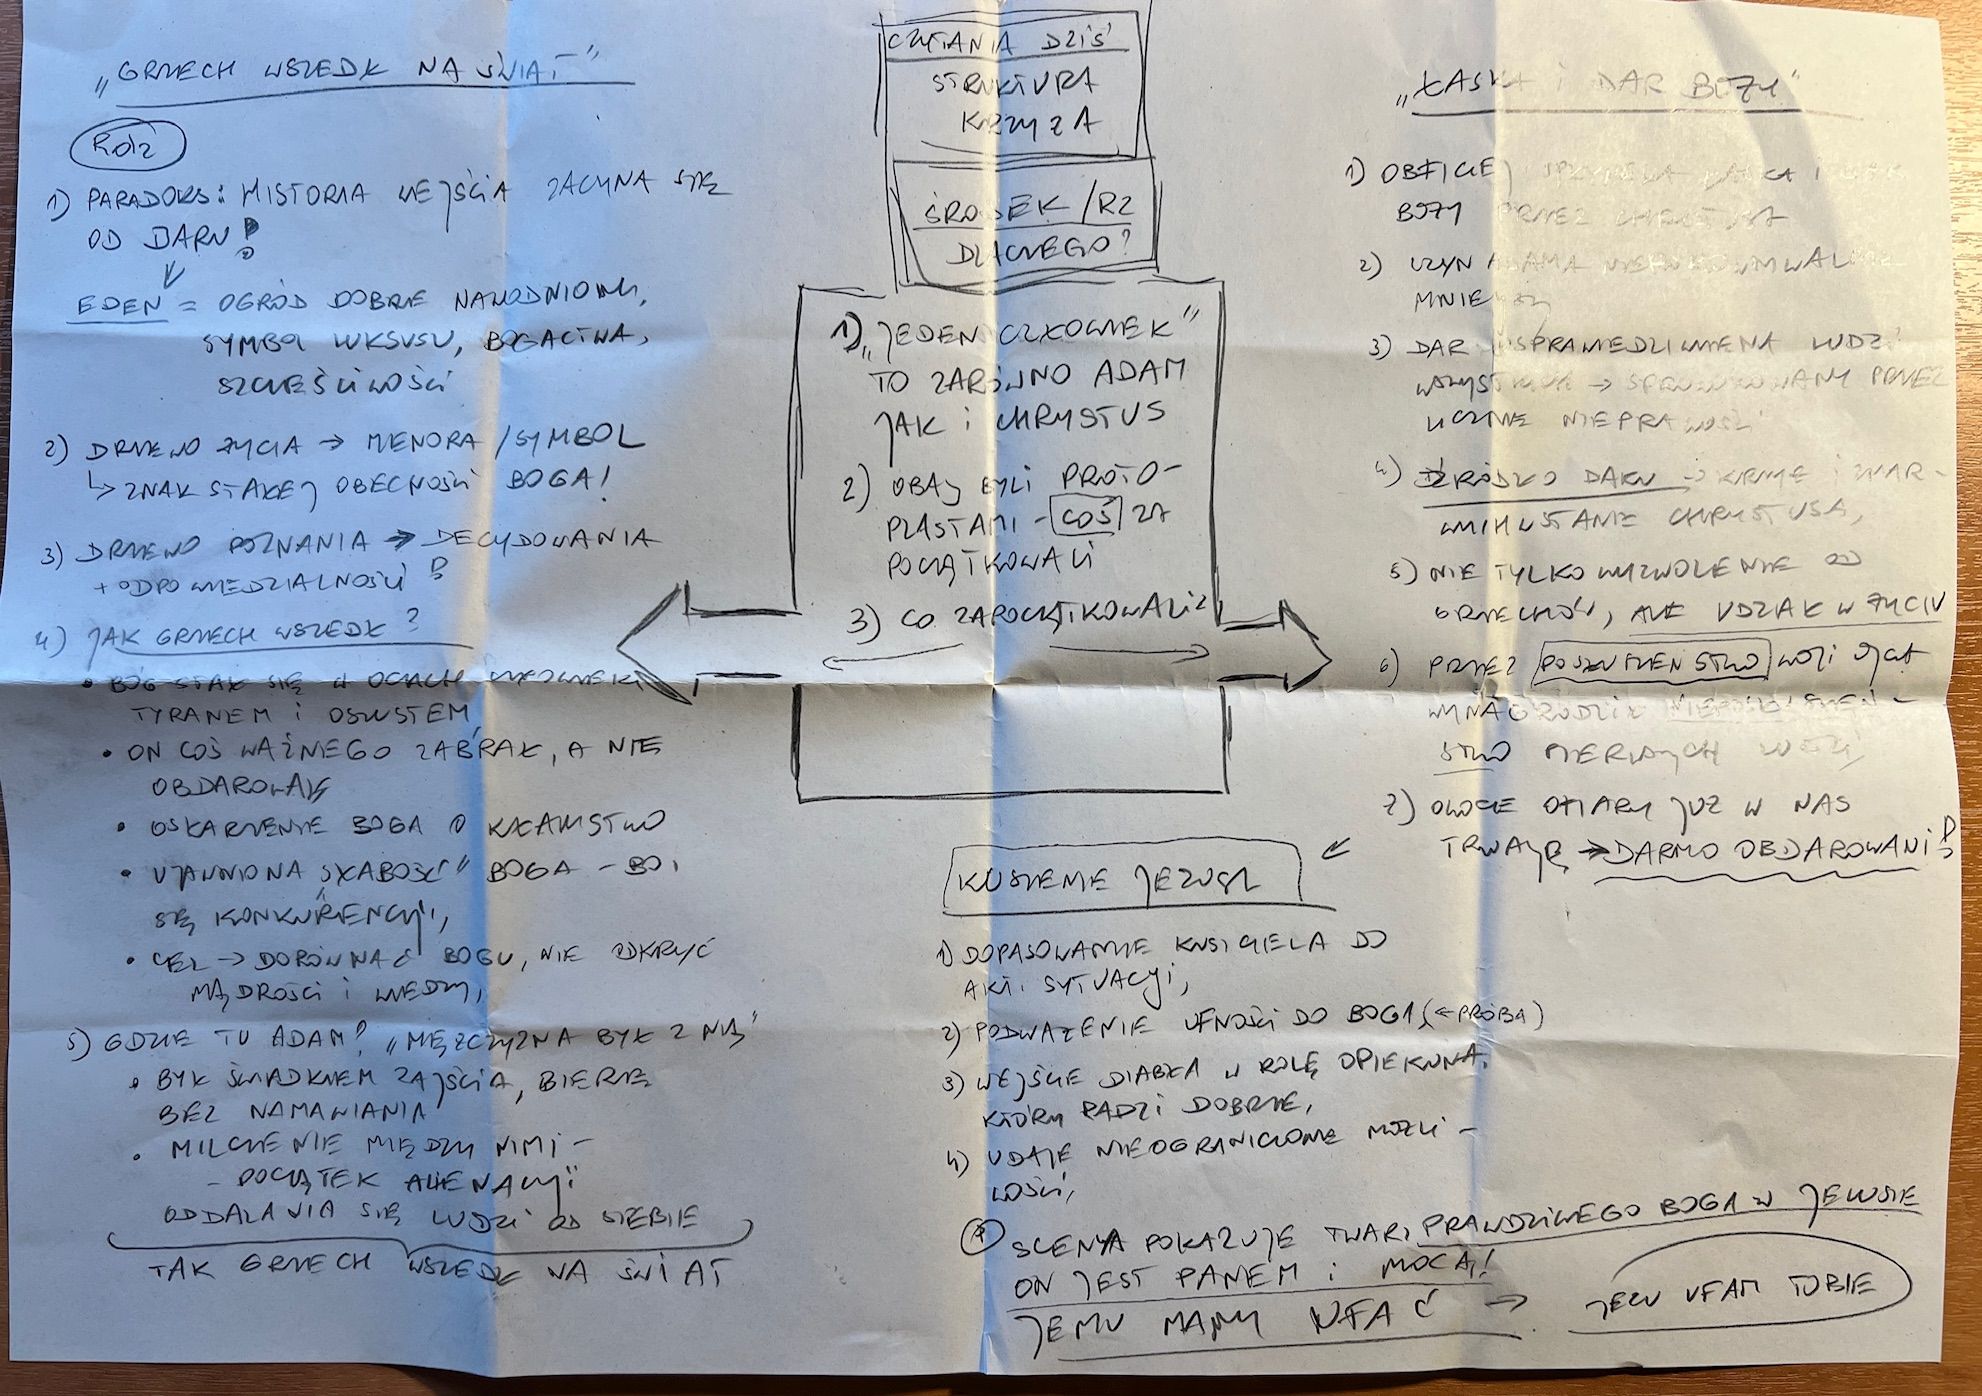 „GRZECH WSZEDŁ NA ŚWIAT"
Rdz
1) PARADOKS: HISTORIA WEJŚCIA ZACZYNA SIĘ
OD DARU!
EDEN = OGRÓD DOBRZE NAWODNIONY,
SYMBOL LUKSUSU, BOGACTWA,
SZCZĘŚLIWOŚCI
2) DRZEWO ŻYCIA → MENORA / SYMBOL
↳ ZNAK STAŁEJ OBECNOŚCI BOGA!
3) DRZEWO POZNANIA → DECYDOWANIA
+ ODPOWIEDZIALNOŚCI!
4) JAK GRZECH WSZEDŁ?
• BÓG STAŁ SIĘ W OCZACH
TYRANEM I OSZUSTEM
• ON COŚ WAŻNEGO ZABRAŁ, A NIE
OBDAROWAŁ
• OSKARŻENIE BOGA O KŁAMSTWO
• UJAWNIONA „SŁABOŚĆ" BOGA – BOI
SIĘ KONKURENCJI,
• CEL → DORÓWNAĆ BOGU, NIE ODKRYĆ
MĄDROŚCI I WIEDZY,
5) GDZIE TU ADAM? „MĘŻCZYZNA BYŁ Z NIĄ"
• BYŁ ŚWIADKIEM ZAJŚCIA, BIERZE
BEZ NAMAWIANIA
• MILCZENIE MIĘDZY NIMI –
– POCZĄTEK ALIENACJI
ODDALANIA SIĘ LUDZI OD SIEBIE
TAK GRZECH WSZEDŁ NA ŚWIAT
CZYTANIA DZIŚ
STRUKTURA
KRZYŻA
ŚRODEK / R2
DLACZEGO?
1) „JEDEN CZŁOWIEK"
TO ZARÓWNO ADAM
JAK I CHRYSTUS
2) OBAJ BYLI PROTO-
PLASTAMI – COŚ ZA
POCZĄTKOWALI
3) CO ZAPOCZĄTKOWALI?
„ŁASKA I DAR BOŻY"
1) OBFICIEJ SPŁYNĘŁA ŁASKA I DAR
BOŻY PRZEZ CHRYSTUSA
2) CZYN ADAMA
MNIEJSZY
3) DAR USPRAWIEDLIWIENIA LUDZI
WSZYSTKICH → SPROWOKOWANY PRZEZ
LICZNE NIEPRAWOŚCI
4) ŹRÓDŁO DARU → KRZYŻ I ZMAR-
WYCHWSTANIE CHRYSTUSA,
5) NIE TYLKO WYZWOLENIE OD
GRZECHÓW, ALE UDZIAŁ W ŻYCIU
6) PRZEZ POSŁUSZEŃSTWO WOLI OJCA
WYNAGRODZIŁ NIEPOSŁUSZEŃ-
STWO PIERWSZYCH LUDZI,
7) OWOCE OFIARY JUŻ W NAS
TRWAJĄ → DARMO OBDAROWANI!
KUSZENIE JEZUSA
1) DOPASOWANIE KUSICIELA DO
AKT. SYTUACJI,
2) PODWAŻENIE UFNOŚCI DO BOGA, (← PRÓBA)
3) WEJŚCIE DIABŁA W ROLĘ OPIEKUNA,
KTÓRY RADZI DOBRZE,
4) UDAJE NIEOGRANICZONE MOŻLI-
WOŚCI,
SCENA POKAZUJE TWARZ PRAWDZIWEGO BOGA W JEZUSIE
ON JEST PANEM I MOCĄ!
JEMU MAMY UFAĆ → JEZU UFAM TOBIE